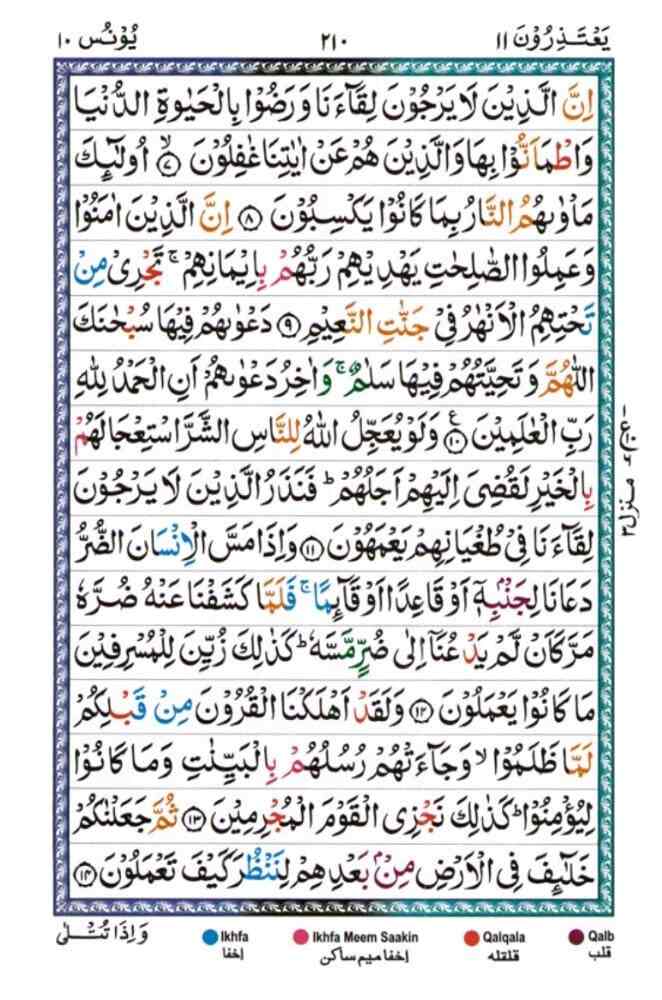 يَعْتَذِرُوْنَ ١١
٢١٠
يُوْنُس ١٠
اِنَّ الَّذِيْنَ لَا يَرْجُوْنَ لِقَآءَنَا وَرَضُوْا بِالْحَيٰوةِ الدُّنْيَا
وَاطْمَاَنُّوْا بِهَا وَالَّذِيْنَ هُمْ عَنْ اٰيٰتِنَا غٰفِلُوْنَ ۙ﴿٧﴾ اُولٰٓئِكَ
مَاْوٰىهُمُ النَّارُ بِمَا كَانُوْا يَكْسِبُوْنَ ﴿٨﴾ اِنَّ الَّذِيْنَ اٰمَنُوْا
وَعَمِلُوا الصّٰلِحٰتِ يَهْدِيْهِمْ رَبُّهُمْ بِاِيْمَانِهِمْ ۚ تَجْرِىْ مِنْ
تَحْتِهِمُ الْاَنْهٰرُ فِىْ جَنّٰتِ النَّعِيْمِ ﴿٩﴾ دَعْوٰىهُمْ فِيْهَا سُبْحٰنَكَ
اللّٰهُمَّ وَتَحِيَّتُهُمْ فِيْهَا سَلٰمٌ ۚ وَاٰخِرُ دَعْوٰىهُمْ اَنِ الْحَمْدُ لِلّٰهِ
رَبِّ الْعٰلَمِيْنَ ﴿١٠﴾ ع وَلَوْ يُعَجِّلُ اللّٰهُ لِلنَّاسِ الشَّرَّ اسْتِعْجَالَهُمْ
بِالْخَيْرِ لَقُضِىَ اِلَيْهِمْ اَجَلُهُمْ ؕ فَنَذَرُ الَّذِيْنَ لَا يَرْجُوْنَ
لِقَآءَنَا فِىْ طُغْيَانِهِمْ يَعْمَهُوْنَ ﴿١١﴾ وَاِذَا مَسَّ الْاِنْسَانَ الضُّرُّ
دَعَانَا لِجَنْۢبِهٖۤ اَوْ قَاعِدًا اَوْ قَآئِمًا ۚ فَلَمَّا كَشَفْنَا عَنْهُ ضُرَّهٗ
مَرَّ كَاَنْ لَّمْ يَدْعُنَاۤ اِلٰى ضُرٍّ مَّسَّهٗ ؕ كَذٰلِكَ زُيِّنَ لِلْمُسْرِفِيْنَ
مَا كَانُوْا يَعْمَلُوْنَ ﴿١٢﴾ وَلَقَدْ اَهْلَكْنَا الْقُرُوْنَ مِنْ قَبْلِكُمْ
لَمَّا ظَلَمُوْا ۙ وَجَآءَتْهُمْ رُسُلُهُمْ بِالْبَيِّنٰتِ وَمَا كَانُوْا
لِيُؤْمِنُوْا ؕ كَذٰلِكَ نَجْزِى الْقَوْمَ الْمُجْرِمِيْنَ ﴿١٣﴾ ثُمَّ جَعَلْنٰكُمْ
خَلٰٓئِفَ فِى الْاَرْضِ مِنْۢ بَعْدِهِمْ لِنَنْظُرَ كَيْفَ تَعْمَلُوْنَ ﴿١٤﴾
منزل ٣
Qalb
قلب
Qalqala
قلقله
Ikhfa Meem Saakin
إخفا ميم ساكن
Ikhfa
إخفا
وَاِذَا تُتْلٰى